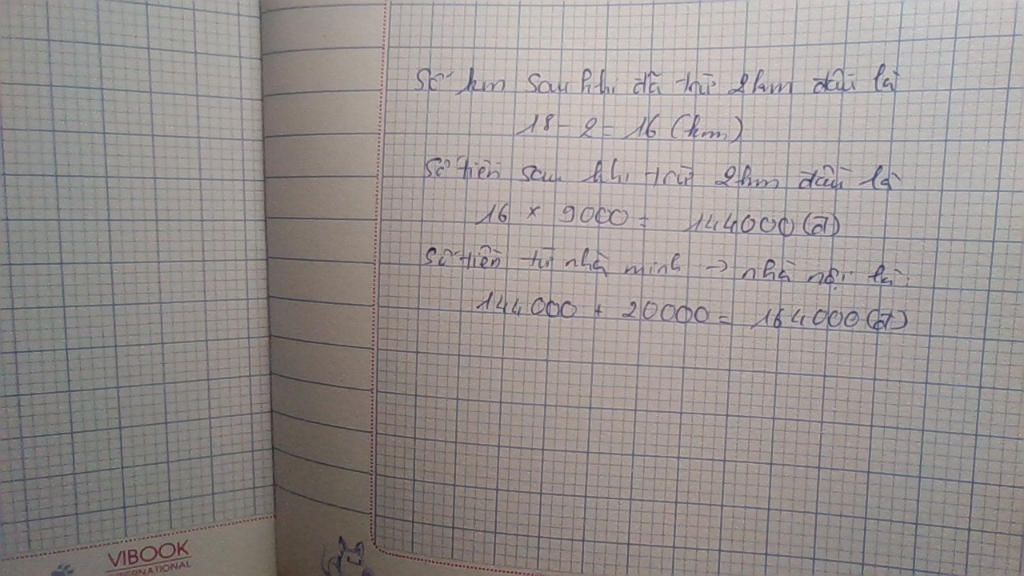 Số km sau khi đã trừ 2km đầu là
18 - 2 = 16 (km)
Số tiền sau khi trừ 2km đầu là
16 × 9000 = 144000 (đ)
Số tiền từ nhà mình → nhà nội là:
144000 + 20000 = 164000 (đ)
VIBOOK
INTERNATIONAL